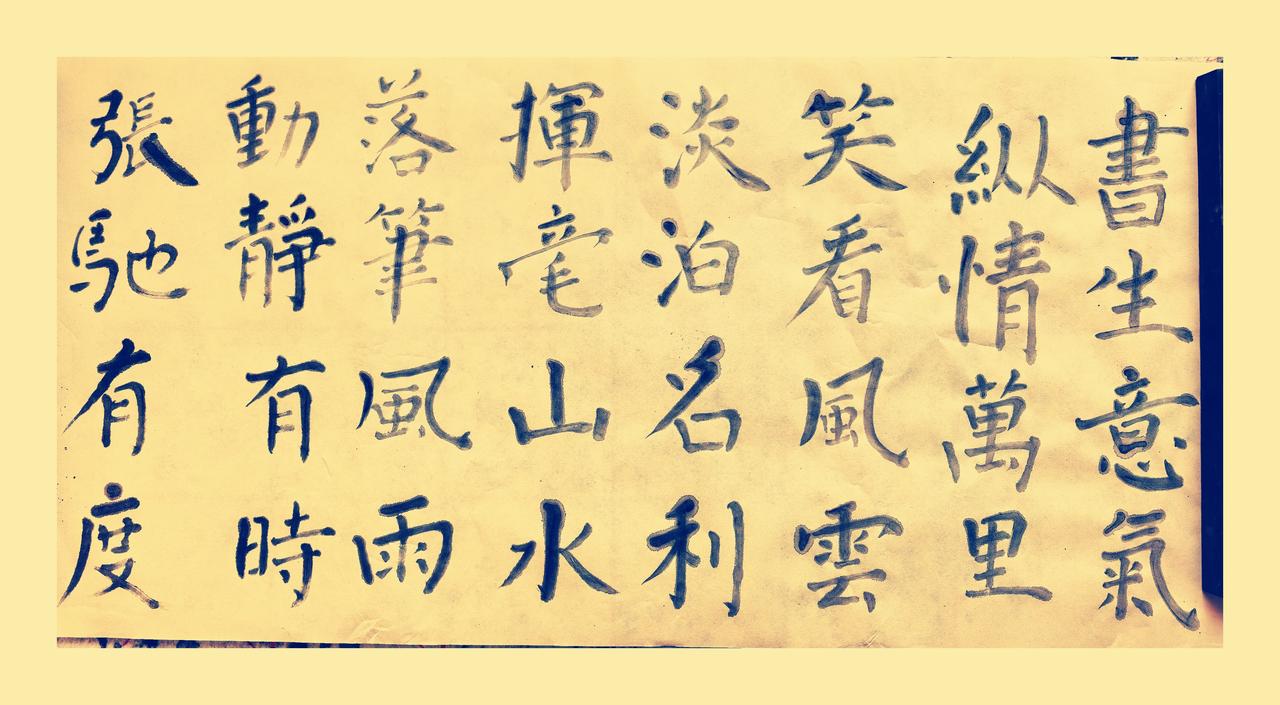 書生意氣
縱情萬里
笑看風雲
淡泊名利
揮毫山水
落筆風雨
動靜有時
張馳有度